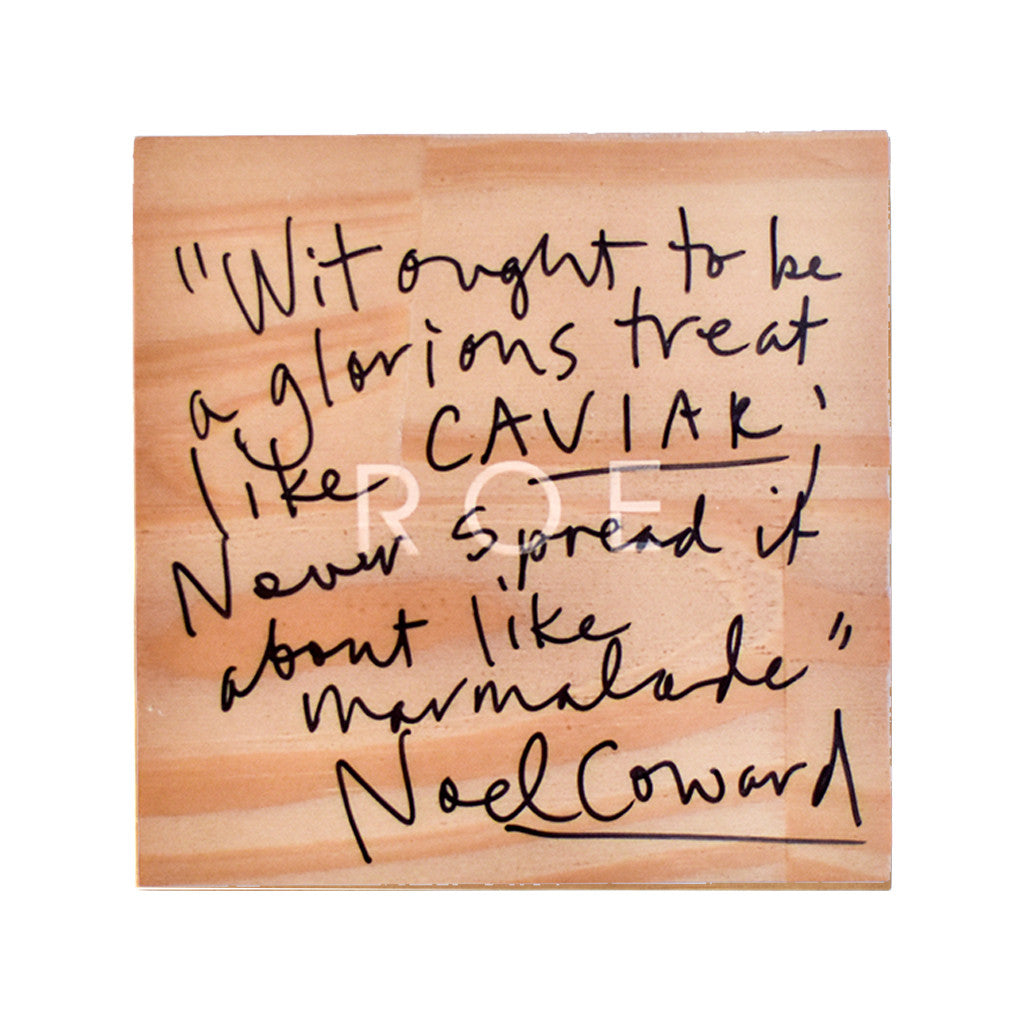 "Wit ought to be
a glorious treat
like CAVIAR;
Never spread it
about like
marmalade"
Noel Coward
ROE